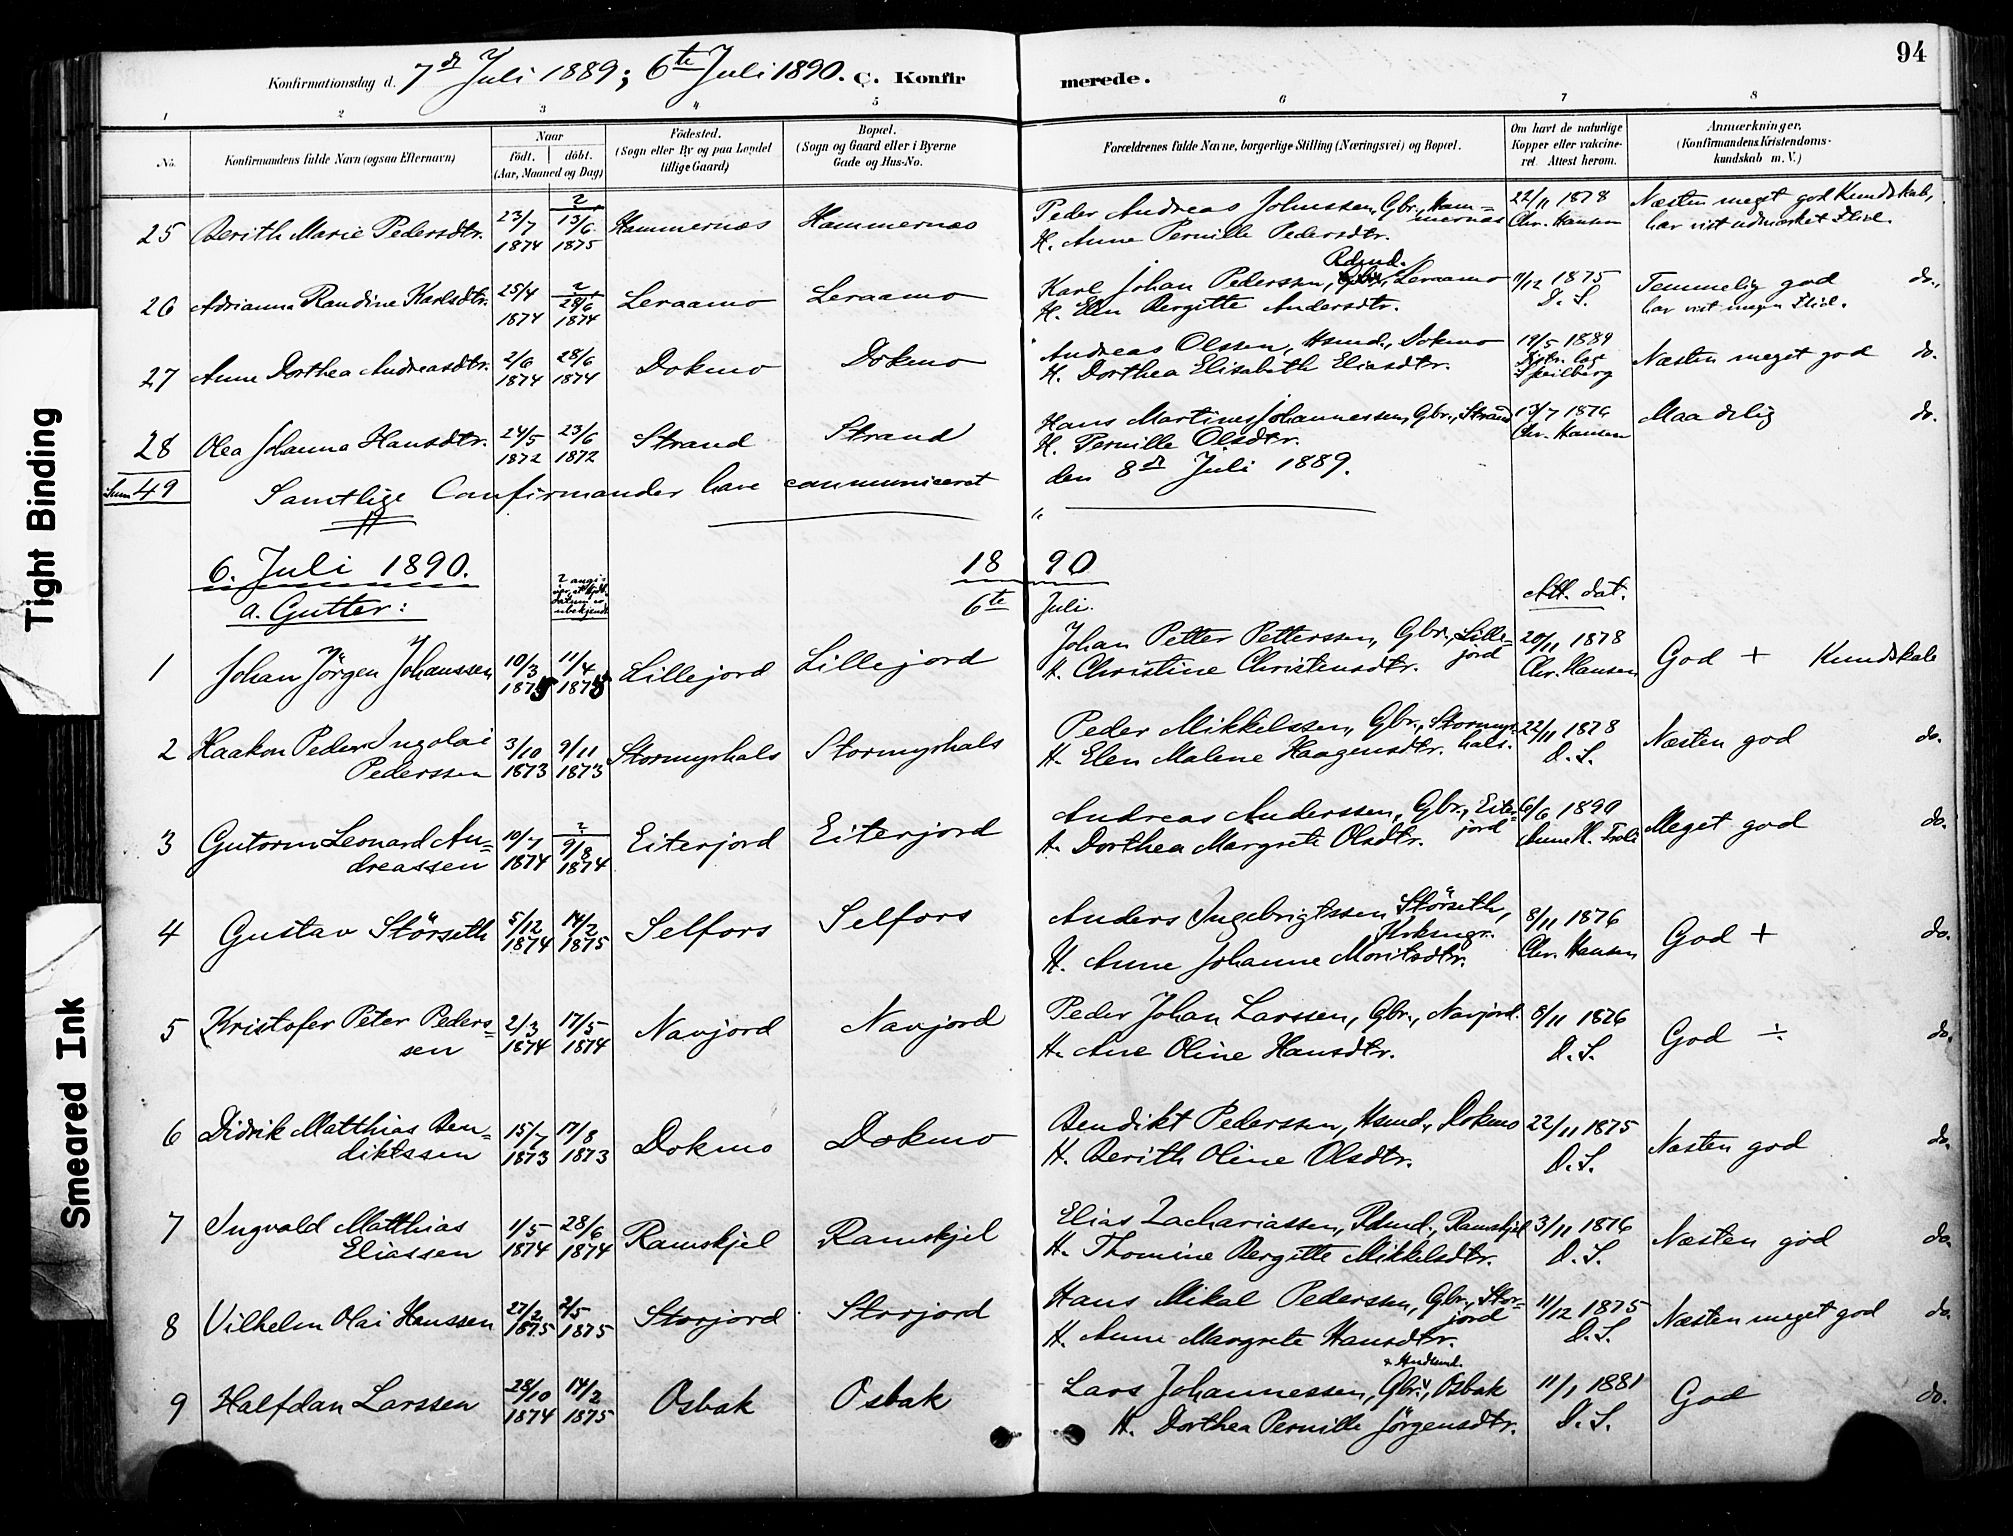 94
Konfirmationsdag d. 7de Juli 1889; 6te Juli 1890. C. Konfirmerede.
1 2 3 4 5 6 7 8
No. Konfirmandens fulde Navn (ogsaa Efternavn) Naar født. døbt. (Aar, Maaned og Dag) Födested. (Sogn eller By og paa Landet tillige Gaard) Bopæl. (Sogn og Gaard eller i Byerne Gade og Hus-No. Forældrenes fulde Navne, borgerlige Stilling (Næringsvei) og Bopæl. Om havt de naturlige Kopper eller vakcineret. Attest herom. Anmærkninger. (Konfirmandens Kristendomskundskab m. V.)
25 Berith Marie Pedersdtr. 23/7 1874 2, 13/6 1875 Hammernæs Hammernæs Peder Andreas Johnssen, Gbr., Hammernæs 22/11 1878 Næsten meget god Kundskab,
H. Anne Pernille Pedersdtr. Chr. Hansen har vist udmærket Flid.
26 Adrianna Randine Karlsdtr. 25/4 1874 2, 28/6 1874 Leraamo Leraamo Karl Johan Pederssen, Rdmd. Leraamo 11/12 1875 Temmelig god do.,
H. Elen Bergitte Andersdtr. D. S. har vist megen Flid.
27 Anne Dorthea Andreasdtr. 2/6 1874 28/6 1874 Dokmo Dokmo Andreas Olssen, Hsmd., Dokmo 19/5 1889 Næsten meget god do.
H. Dorthea Elisabeth Eliasdtr. Distr. læg
28 Olea Johanna Hansdtr. 24/5 1872 23/6 1872 Strand Strand Hans Martinus Johannessen, Gbr., Strand 13/7 1876 Maadelig do.
H. Pernille Olsdtr. Chr. Hansen
Sum 49 Samtlige Confirmander have communiceret den 8de Juli 1889.
6. Juli 1890. 18 90
a. Gutter: 6te Juli. Att. dat.
1 Johan Jörgen Johanssen 10/3 1875 11/4 1875 Lillejord Lillejord Johan Petter Petterssen, Gbr., Lillejord 20/11 1878 God + Kundskab
H. Christine Christensdtr. Chr. Hansen
2 Haakon Peder Ingolai Pederssen 3/10 1873 9/11 1873 Stormyrhals Stormyrhals Peder Mikkelssen, Gbr., Stormyrhals. 22/11 1878 Næsten god do.
H. Elen Malene Haagensdtr. D. S.
3 Gutorm Leonard Andreassen 10/7 1874 2, 9/8 1874 Eiterjord Eiterjord Andreas Anderssen, Gbr., Eiterjord 6/6 1890 Meget god do.
H. Dorthea Margrete Olsdtr.
4 Gustav Störseth 5/12 1874 14/2 1875 Selfors Selfors Anders Ingebrigtssen Störseth, 8/11 1876 God + do.
H. Anne Johanne Moritsdtr. Chr. Hansen
5 Kristofer Peter Pederssen 2/3 1874 17/5 1874 Navjord Navjord Peder Johan Larssen, Gbr., Navjord. 8/11 1876 God ÷ do.
H. Ane Oline Hansdtr. D. S.
6 Didrik Matthias Bendiktssen 15/7 1873 17/8 1873 Dokmo Dokmo Bendikt Pederssen, Hsmd., Dokmo 22/11 1875 Næsten god do.
H. Berith Oline Olsdtr. D. S.
7 Ingvald Matthias Eliassen 1/5 1874 28/6 1874 Ramskjel Ramskjel Elias Zachariassen, Rdmd., Ramskjel 3/11 1876 Næsten god do.
H. Thomine Bergitte Mikkelsdtr. D. S.
8 Vilhelm Olai Hanssen 27/2 1875 2/5 1875 Storjord Storjord Hans Mikal Pederssen, Gbr., Storjord 11/12 1875 Næsten meget god do.
H. Anne Margrete Hansdtr. D. S.
9 Halfdan Larssen 28/10 1874 14/2 1875 Osbak Osbak Lars Johannessen, Gbr., Osbak 11/1 1881 God do.
H. Dorthea Pernille Jörgensdtr. D. S.
Tight Binding
Smeared Ink